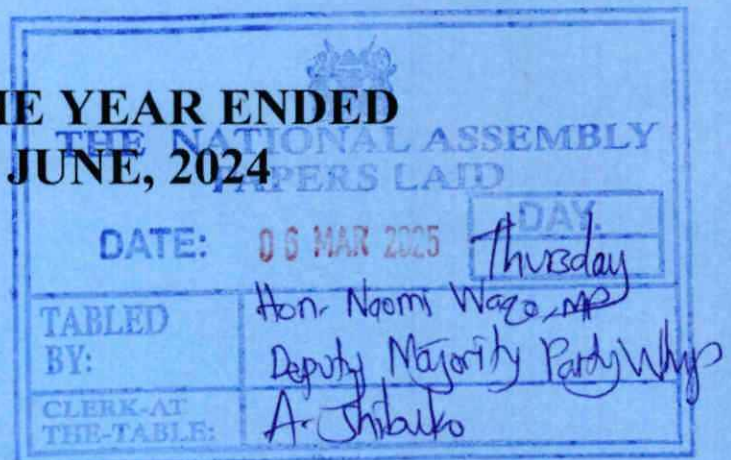 HE YEAR ENDED
THE NATIONAL ASSEMBLY
JUNE, 2024
PAPERS LAID
DATE: 06 MAR 2025 DAY.
Thursday
TABLED BY: Hon. Naomi Waqo, MP
Deputy Majority Party Whip
CLERK-AT THE-TABLE: A. Shibuko